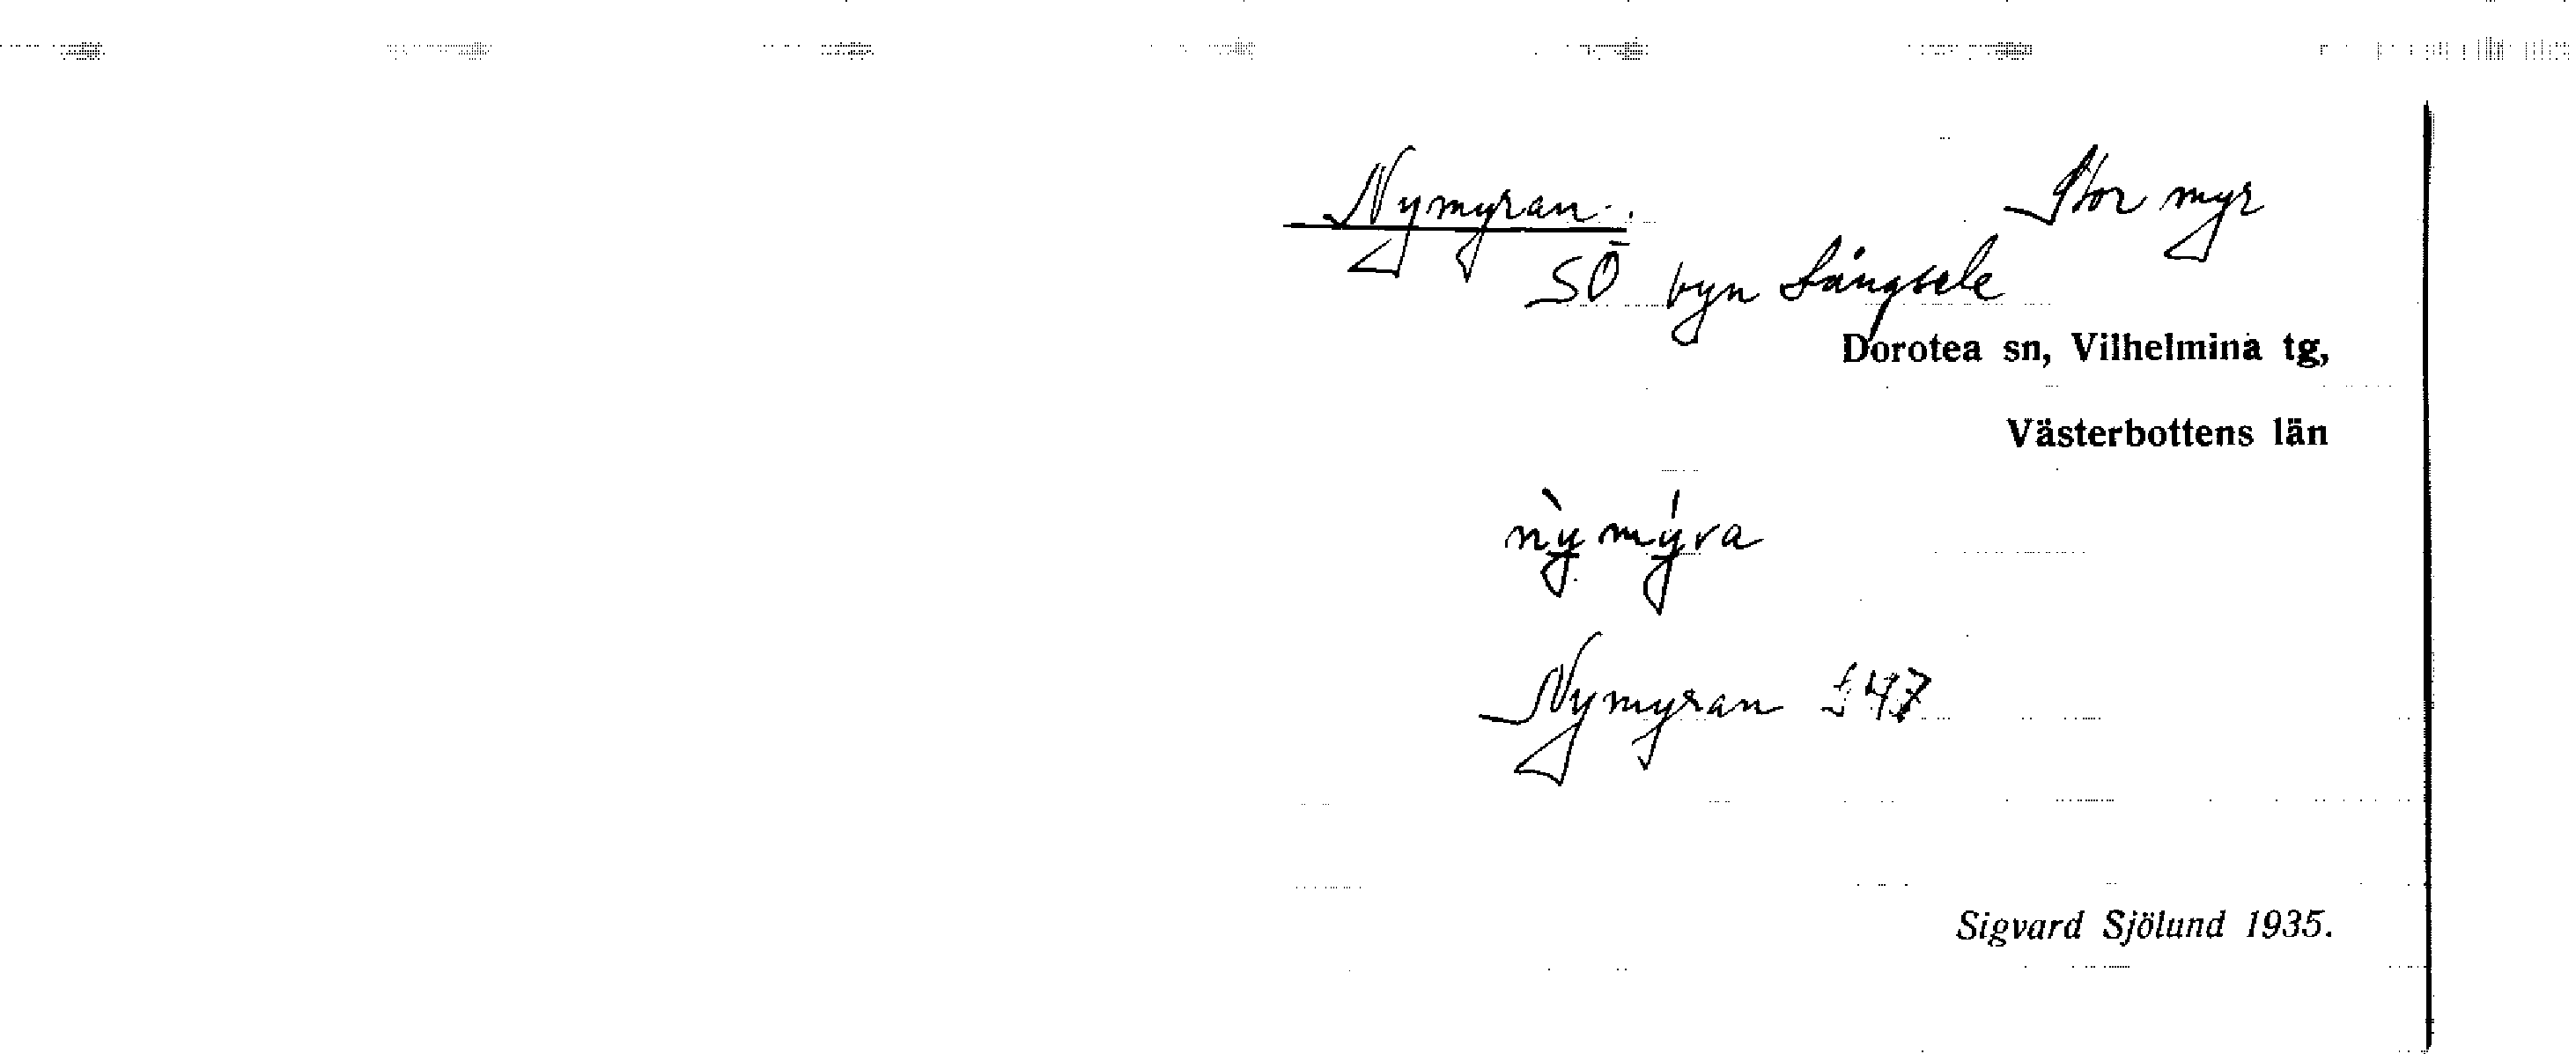 Nymyran. Stor myr
SÖ byn Långsele
Dorotea sn, Vilhelmina tg,
Västerbottens län
nỳmýra
Nymyran 147
Sigvard Sjölund 1935.